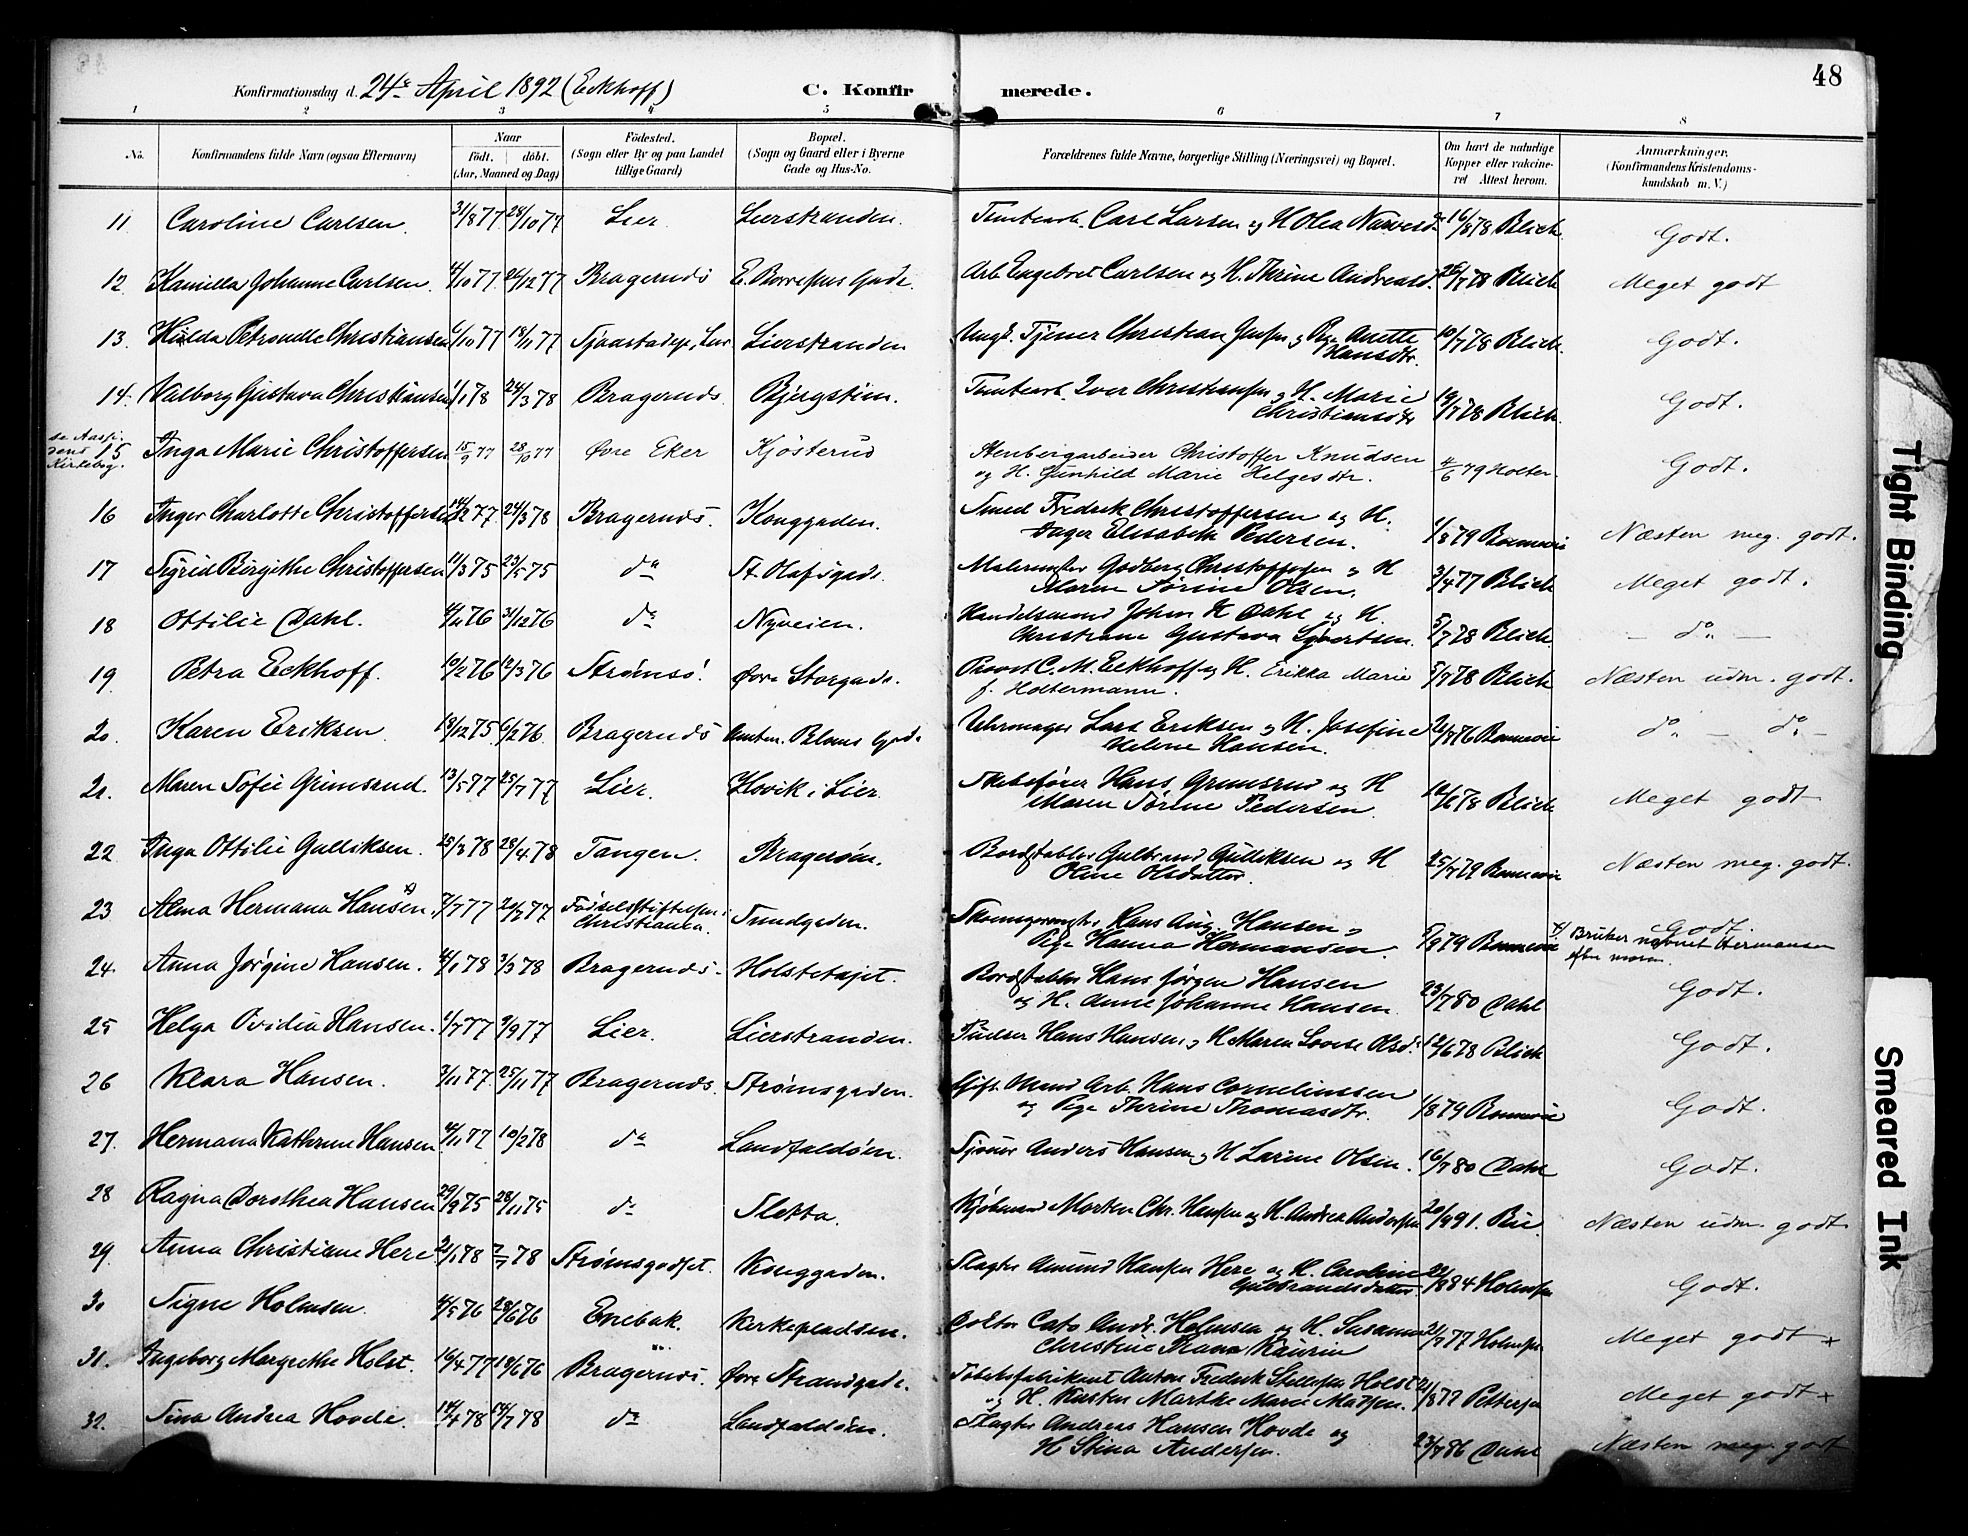 48
Konfirmationsdag d. 24de April 1892 (Eckhoff) C. Konfirmerede.
1 2 3 4 5 6 7 8
No. Konfirmandens fulde Navn (ogsaa Efternavn) Naar født. døbt. (Aar, Maaned og Dag) Fødested. (Sogn eller By og paa Landet tillige Gaard) Bopæl. (Sogn og Gaard eller i Byerne Gade og Hus-No. Forældrenes fulde Navne, borgerlige Stilling (Næringsvei) og Bopæl. Om havt de naturlige Kopper eller vakcineret Attest herom. Anmærkninger. (Konfirmandens Kristendomskundskab m. V.)
11 Caroline Carlsen. 31/8 77 28/10 77 Lier. Lierstranden. Tomtearb. Carl Larsen og H Olea Narvesd. 16/8 78 Blich. Godt.
12 Kamilla Johanne Carlsen. 4/10 77 26/12 77 Bragernæs E. Borresens Gade. Arb Engebret Carlsen og H. Thrine Andreasd. 26/7 78 Blich Meget godt
13. Hilda Petronelle Christiansen 6/10 77 18/11 77 Lierstranden Ungk. Tjener Christian Jensen og Pige Anette Hansdtr. 10/7 78 Blich. Godt.
14. Valborg Gustava Christiansen 1/1 78 24/3 78 Bragernæs Bjergstien. Tomtearb. Iver Christiansen og H. Marie Christiansdtr 19/7 78 Blich. Godt.
15 Inga Marie Christoffersen 15/9 77 28/10 77 Øvre Eker Kjøsterud Stenbergarbeider Christoffer Knudsen
og H. Gunhild Marie Helgesdtr. 4/6 79 Holter. Godt.
16 Inger Charlotte Christoffersen 24/3 78 Bragernæs. Konggaden. Smed Fredrik Christoffersen og H.
Inger Elisabeth Pedersen. 1/8 79 Næsten meg. godt.
17 Sigrid Birgithe Christoffersen 11/3 75 23/5 75 do St. Olafsgade. Malermester Godberg Christoffersen og H
Maren Sørine Olsen. 3/4 77 Blich Meget godt.
18 Ottilie Dahl. 31/12 76 do Nyveien. Handelsmand Johan H Dahl og H.
Christiane Gustava Syvertsen. 5/7 78 Blich. – do. –
19. Petra Eckhoff. 10/2 76 12/3 76 Strømsø. Øvre Storgade. Provst C. M. Eckhoff og H. Erikka Marie
f. Holtermann. 5/7 78 Blich Næsten udm. godt.
20. Karen Eriksen. 18/12 75. 6/2 76. Bragernæs Amtm. Bloms Gade. Uhrmager Lars Eriksen og H. Josefine
Helene Hansen. do. – do. –
21. Maren Sofie Grimsrud. 13/5 77 25/7 77 Lier. Hovik i Lier. Skibsfører Hans Grimsrud og H
Maren Sørine Pedersen. 12/6 78 Blich Meget godt
22 Inga Ottilie Gulliksen. 25/3 78 28/4 78 Tangen. Bragerøen. Bordstabler Gulbrand Gulliksen og H
Oline Olsdatter. 25/7 79 Næsten meg. godt.
23 Alma Hermana Hansen. 7/7 77 Fødselsstiftelsen i Christiania. Tundgaden. Skomagermester Hans Aug. Hansen og
Pige Hanna Hermansen. 5/9 79 Godt.
x) Bruker navnet Hermansen efter moren.
24. Anna Jørgine Hansen. 4/1 78 3/3 78 Bragernæs. Holstetajet. Bordstabler Hans Jørgen Hansen
og H. Anne Johanne Hansen. 23/7 80 Dahl Godt.
25 Helga Ovidia Hansen. 1/7 77 9/9 77 Lier. Lierstranden. Pudser Hans Hansen og H Maren Lovise Olsd. 12/6 78 Blich Godt.
26 Klara Hansen. 3/11 77. 25/11 77 Bragernæs. Strømsgaden. Gift Mand Arb. Hans Corneliussen
og Pige Thrine Thomasdtr. 1/8 79 Godt.
27. Hermana Kathrine Hansen 4/11 77 10/2 78 do Landfaldøen. Tjener Anders Hansen og H Larine Olsen. 16/7 80 Dahl Godt.
28 Ragna Dorothea Hansen 29/9 75 28/11 75 do Sletta. Kjøbmand Morten Chr. Hansen og H. Andrea Andersen 20/9 91. Bu. Næsten udm. godt
29. Anna Christiane Here 21/1 78 7/7 78 Strømsgodset. Konggaden. Slagter Amund Hansen Here og H. Caroline
Gulbrandsdatter. 22/8 84 Holmsen Godt.
30 Signe Holmsen. 4/5 76 28/6 76 Enebak. Kirkepladsen. Doktor Cato Andr. Holmsen og H. Susanna
Christine 21/9 77 Holmsen Meget godt x
31. Ingeborg Margrethe Holst. 16/4 77 18/6 76 Bragernæs. Øvre Strandgade. Tobaksfabrikant Anton Fredrik Stillesen Holst
og H. Karsten Marthe Marie Madsen. 21/8 77 Pettersen Meget godt x
32. Tina Andrea Hovde. 14/4 78 14/7 78 do Landfaldøen. Slagter Andreas Hansen Hovde og
H Stina Andersen. 23/7 86 Dahl Næsten meg. godt
Tight Binding
Smeared Ink